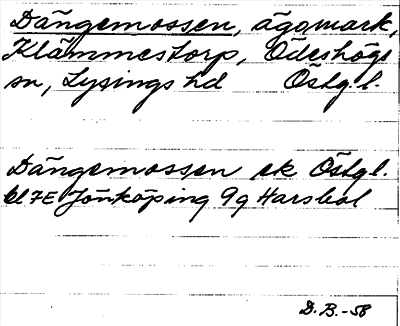 Dängemossen, ägomark,
Klämmestorp, Ödeshögs
sn, Lysings hd Östgl.
Dängemossen ek Östgl.
bl 7E Jönköping 9g Harsbol
D.B.-58